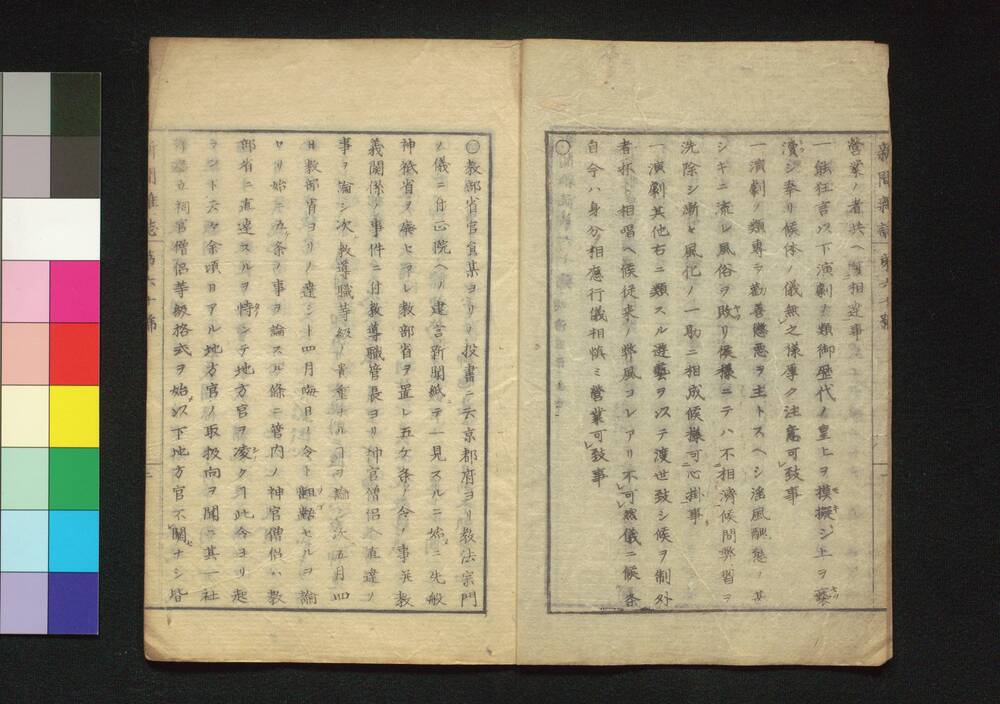 營業ノ者共ヘ可相達事
一能狂言以下演劇ノ類御歴代ノ皇上ヲ摸擬シ上ヲ褻
瀆シ奉リ候体ノ儀無之様厚ク注意可致事
一演劇ノ類専ラ勸善懲悪ヲ主トスヘシ淫風醜態ノ甚
シキニ流レ風俗ヲ敗リ候様ニテハ不相濟候間弊習ヲ
洗除シ漸ヒ風化ノ一助ニ相成候様可心掛事
一演劇其他右ニ類スル遊藝ヲ以テ渡世致シ候ヲ制外
者抔ト相唱ヘ候従来ノ弊風コレアリ不可然儀ニ候条
自今ハ身分相應行儀相慎ミ營業可致事
〇
〇教部省官員某ヨリノ投書ニ云京都府ヨリ教法宗門
ノ儀ニ付正院ヘノ建言新聞紙テ一見スルニ始ニ先般
神祇省ヲ廃セラレ教部省ヲ置レ五ケ条ノ令ノ事并教
義関係ノ事件ニ付教導職管長ヨリ神官僧侶ヘ直達ノ
事ヲ論シ次教導職等級ノ貴重ナルヿヲ論シ次五月四
日教部省ヨリノ達シト四月晦日ノ令ト齟齬セルヲ論
セリ始ニ五条ノ事ヲ論スル條ニ管内ノ神官僧侶ハ教
部省ニ直達スルヲ恃ンテ地方官ヲ凌クヿ此令ヨリ起
ラントス云々余頃日アル地方官ノ取扱向ヲ聞ニ其一社
祠官僧侶等級格式ヲ始以下地方官不関ナシ皆
新聞雑誌 第六十號